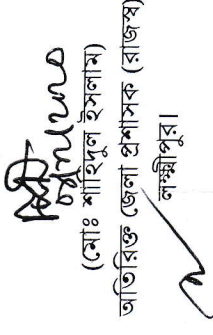 (মোঃ শাহিদুল ইসলাম)
অতিরিক্ত জেলা প্রশাসক (রাজস্ব)
লক্ষ্মীপুর।